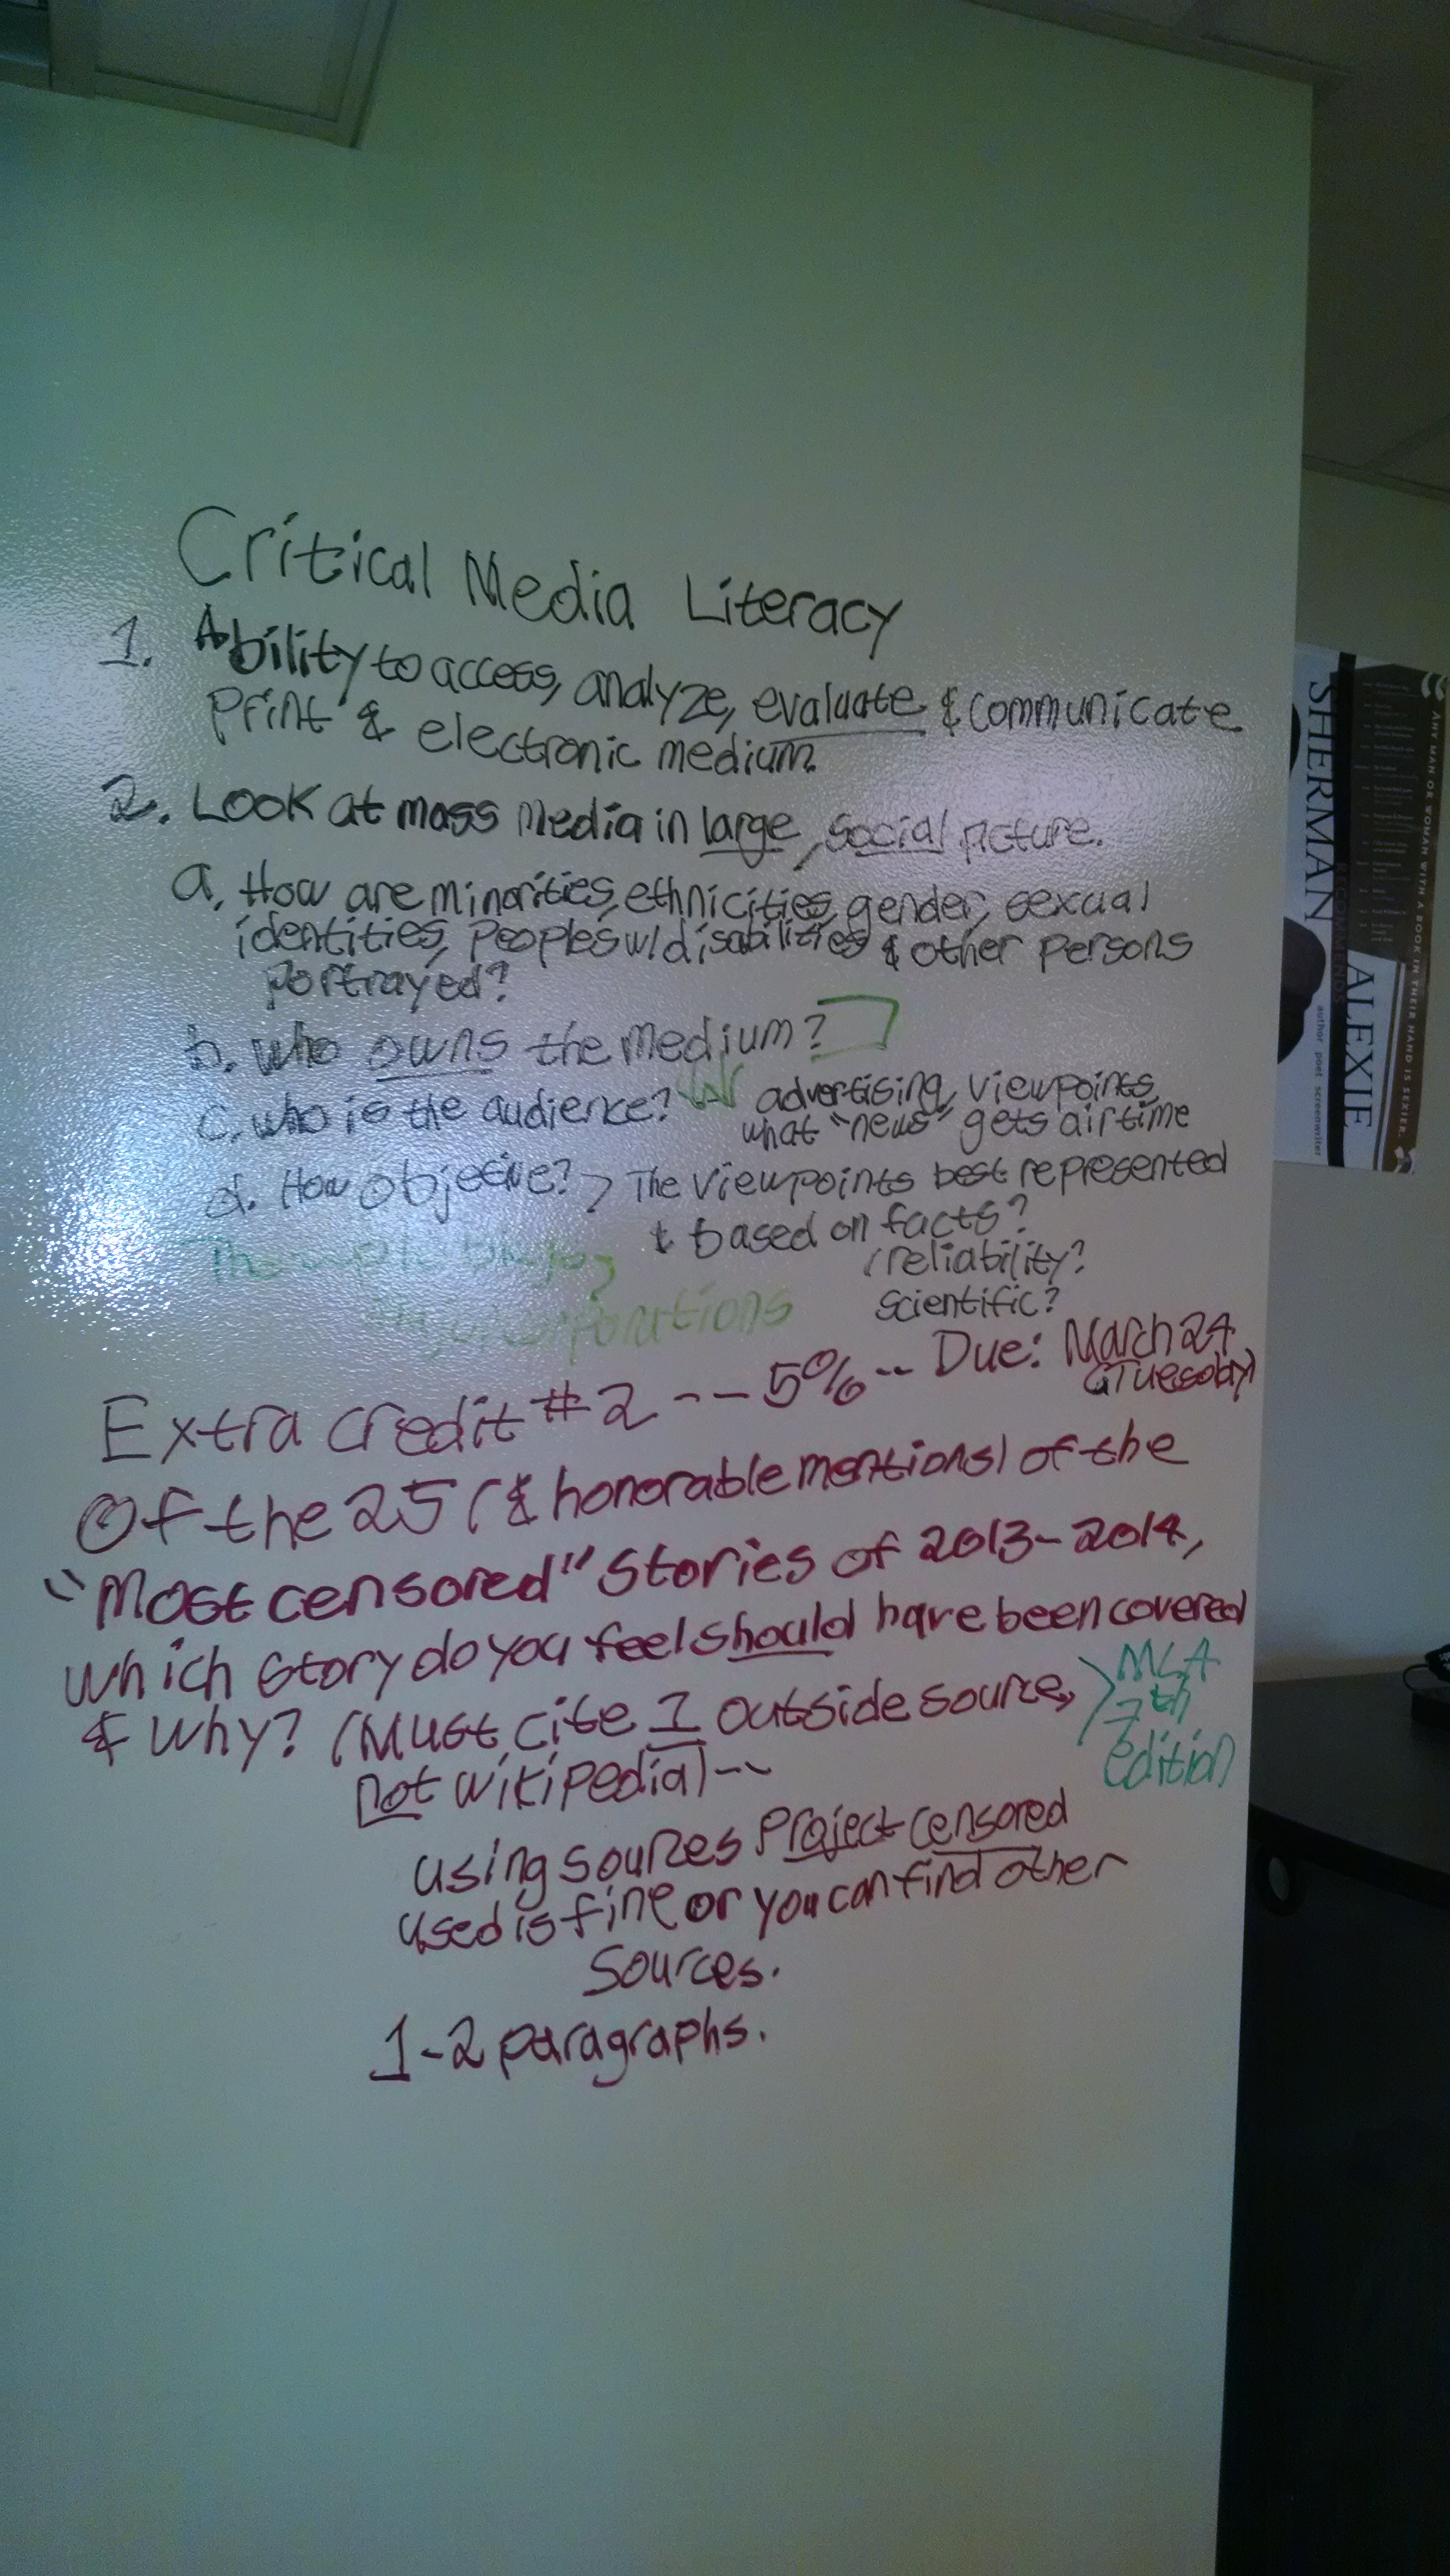 Critical Media Literacy
1. Ability to access, analyze, evaluate & communicate
print & electronic medium.
2. Look at mass media in large, social picture.
a. How are minorities, ethnicities, gender, sexual
identities, peoples w/disabilities & other persons
portrayed?
b. who owns the medium?
c. who is the audience? advertising, viewpoints,
what "news" gets airtime
d. How objective? > The viewpoints best represented
& based on facts?
reliability?
scientific?
The
corporations
Extra credit #2 -- 5% -- Due: March 24
(Tuesday)
Of the 25 (& honorable mentions) of the
"Most censored" stories of 2013-2014,
which story do you feel should have been covered
& why? (Must cite 1 outside source, > MLA
7th
not wikipedia) -- edition
using sources Project Censored
used is fine or you can find other
sources.
1-2 paragraphs.
SHERMAN
ALEXIE
RECOMMENDS
author poet screenwriter
"ANY MAN OR WOMAN WITH A BOOK IN THEIR HAND IS SEXIER."